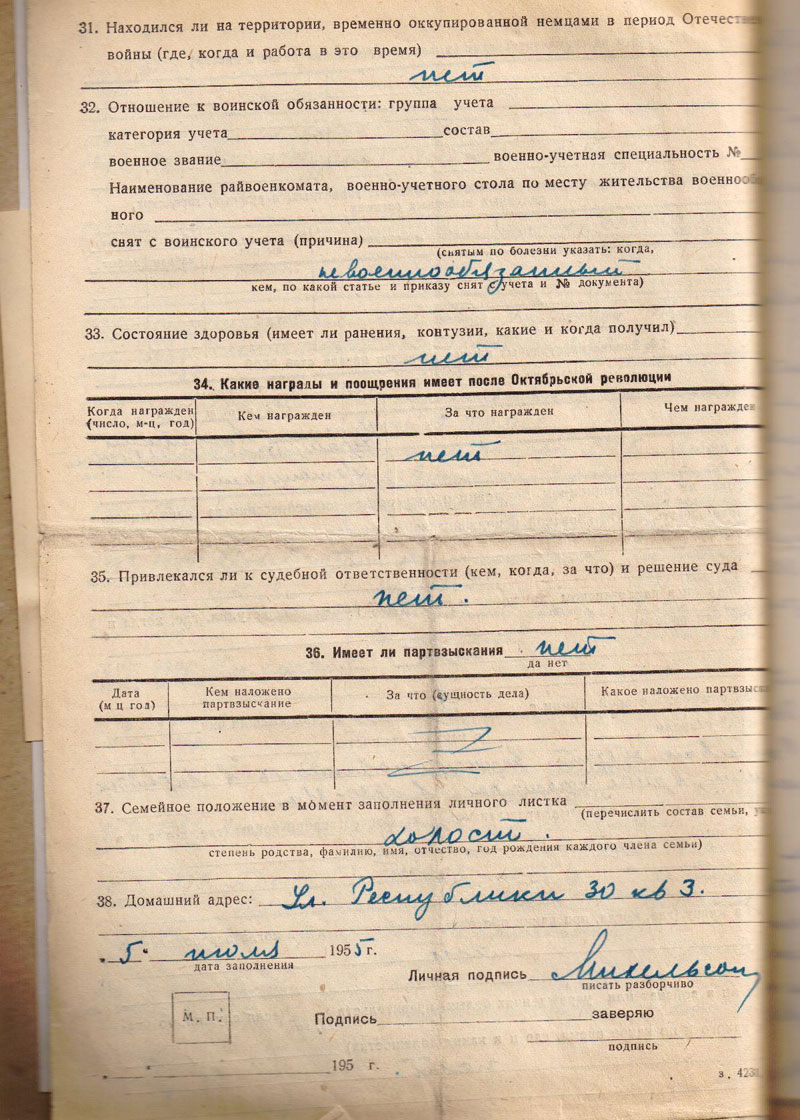 31. Находился ли на территории, временно оккупированной немцами в период Отечест
войны (где, когда и работа в это время)
нет
32. Отношение к воинской обязанности: группа учета
категория учета состав
военное звание военно-учетная специальность №
Наименование райвоенкомата, военно-учетного стола по месту жительства военноо
ного
снят с воинского учета (причина)
(снятым по болезни указать: когда,
невоеннообязанный
кем, по какой статье и приказу снят с учета и № документа)
33. Состояние здоровья (имеет ли ранения, контузии, какие и когда получил)
нет
34. Какие награды и поощрения имеет после Октябрьской революции
Когда награжден Кем награжден За что награжден Чем награжде
(число, м-ц, год)
нет
35. Привлекался ли к судебной ответственности (кем, когда, за что) и решение суда
нет.
36. Имеет ли партвзыскания нет
да нет
Дата Кем наложено За что (сущность дела) Какое наложено партвзыс
(м ц год) партвзыскание
37. Семейное положение в момент заполнения личного листка
(перечислить состав семьи,
холост.
степень родства, фамилию, имя, отчество, год рождения каждого члена семьи)
38. Домашний адрес: Ул. Республики 30 кв 3.
„5" июля 1955 г.
дата заполнения
Личная подпись Михельсон
писать разборчиво
М. П.
Подпись заверяю
подпись
195 г.
з. 423